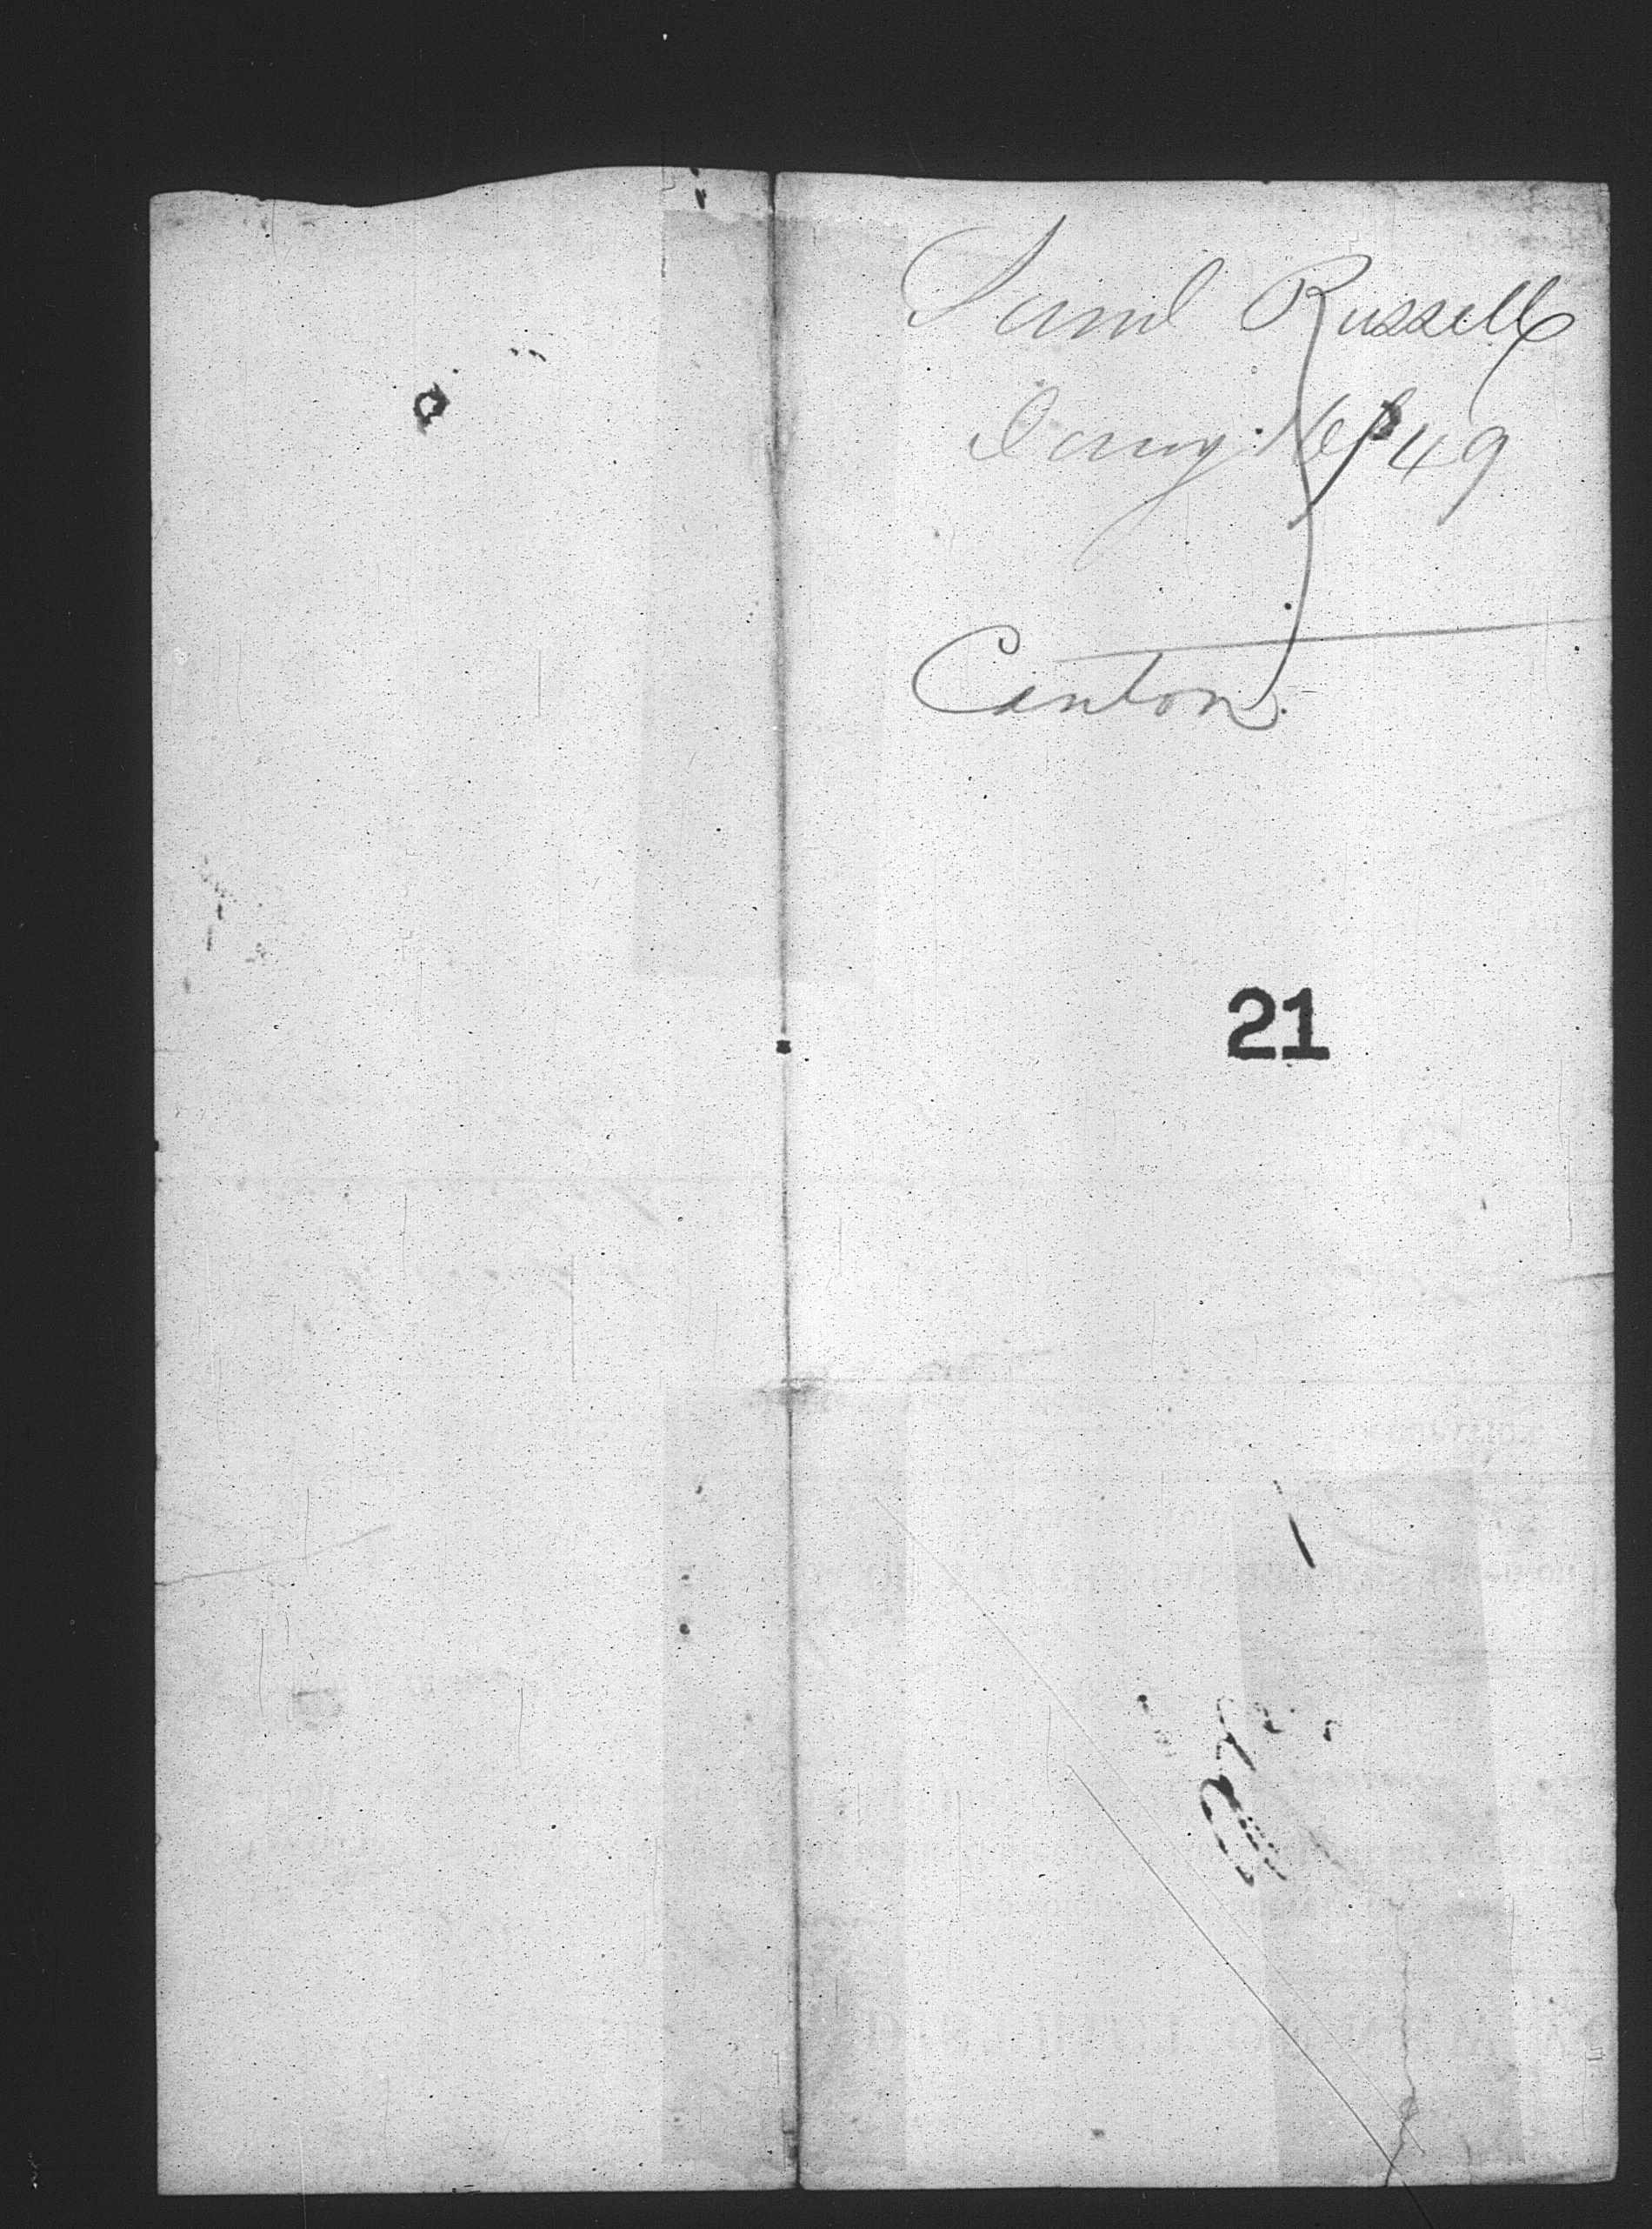 Saml Russell
Jany 16/49
Canton
21